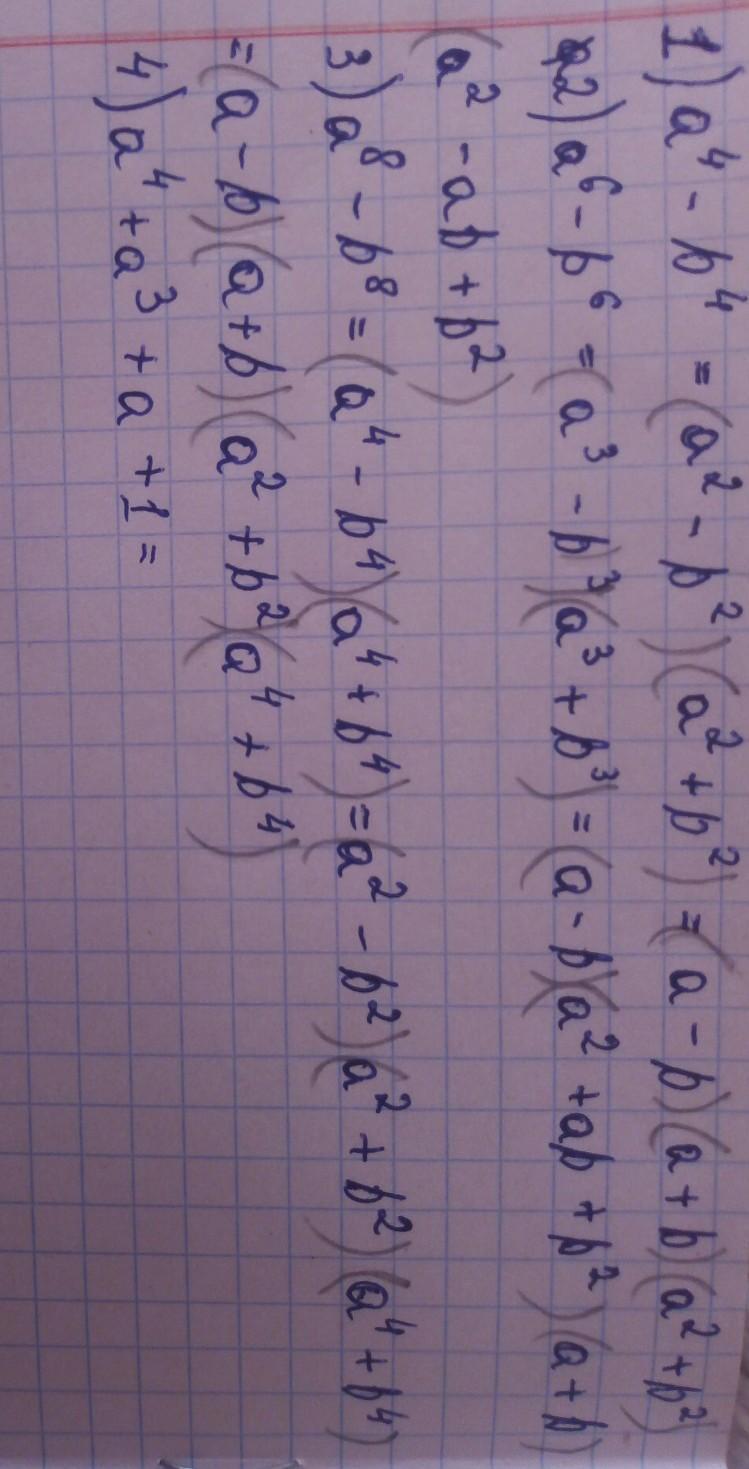 1) a⁴ - b⁴ = (a² - b²)(a² + b²) = (a - b)(a + b)(a² + b²)
2) a⁶ - b⁶ = (a³ - b³)(a³ + b³) = (a - b)(a² + ab + b²)(a + b)
(a² - ab + b²)
3) a⁸ - b⁸ = (a⁴ - b⁴)(a⁴ + b⁴) = (a² - b²)(a² + b²)(a⁴ + b⁴)
= (a - b)(a + b)(a² + b²)(a⁴ + b⁴)
4) a⁴ + a³ + a + 1 =